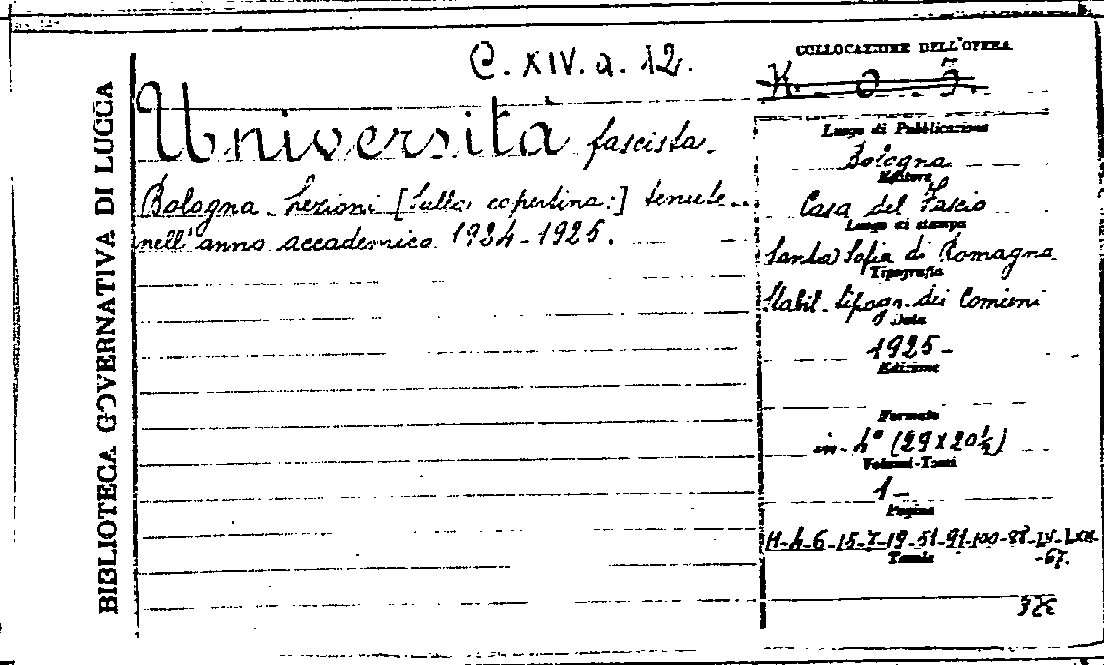 BIBLIOTECA GOVERNATIVA DI LUCCA
C. XIV. a. 12.
COLLOCAZIONE DELL'OPERA
K. 0 3.
Università fascista.
Bologna. Lezioni [Sulla copertina:] tenute
nell'anno accademico 1924-1925.
Luogo di Pubblicazione
Bologna
Editore
Casa del Fascio
Luogo di stampa
Santa Sofia di Romagna
Tipografia
Stabil. tipogr. dei Comuni
Data
1925
Edizione
Formato
in-4° (29x20½)
Volumi-Tomi
1
Pagine
4-6-15-7-19-51-91-100-
-67.
Tavole